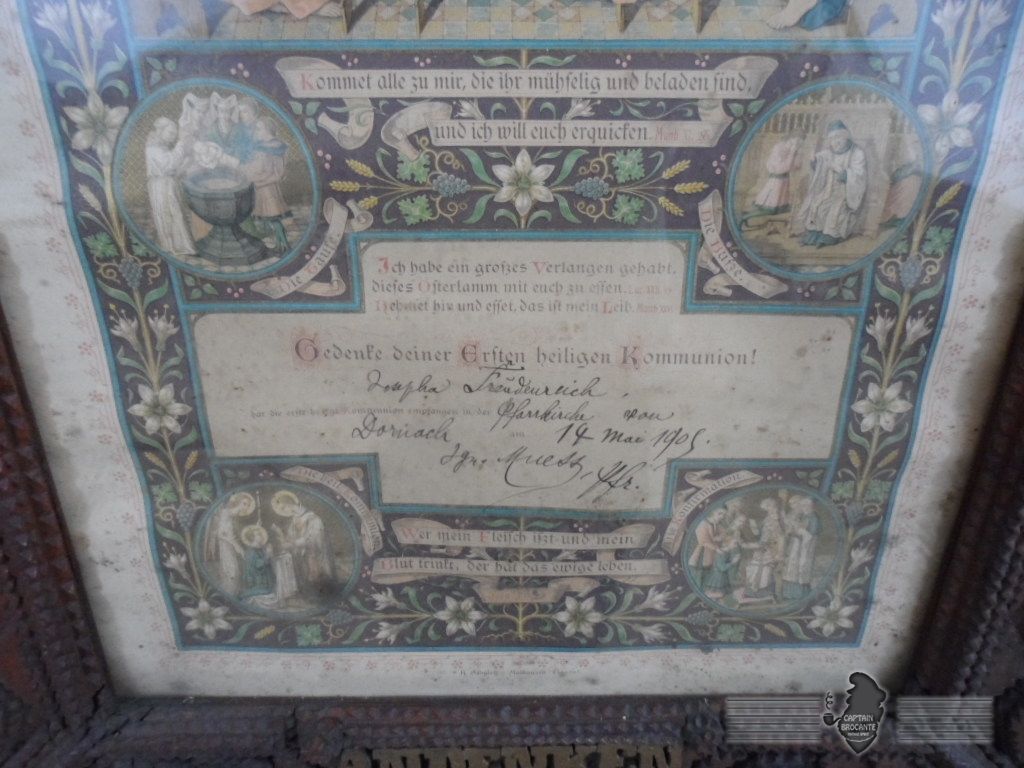 Kommet alle zu mir, die ihr mühselig und beladen sind,
und ich will euch erquicken. Matth.
Die Taufe
Die Buße
Ich habe ein großes Verlangen gehabt,
dieses Osterlamm mit euch zu essen.
Nehmet hin und esset, das ist mein Leib.
Gedenke deiner Ersten heiligen Kommunion!
Josepha Freudenreich
hat die erste heilige Kommunion empfangen in der Pfarrkirche von
Dornach am 14 Mai 1905.
Pfr.
Wer mein Fleisch ißt und mein
Blut trinkt, der hat das ewige Leben.
ANDENKEN
CAPTAIN
BROCANTE